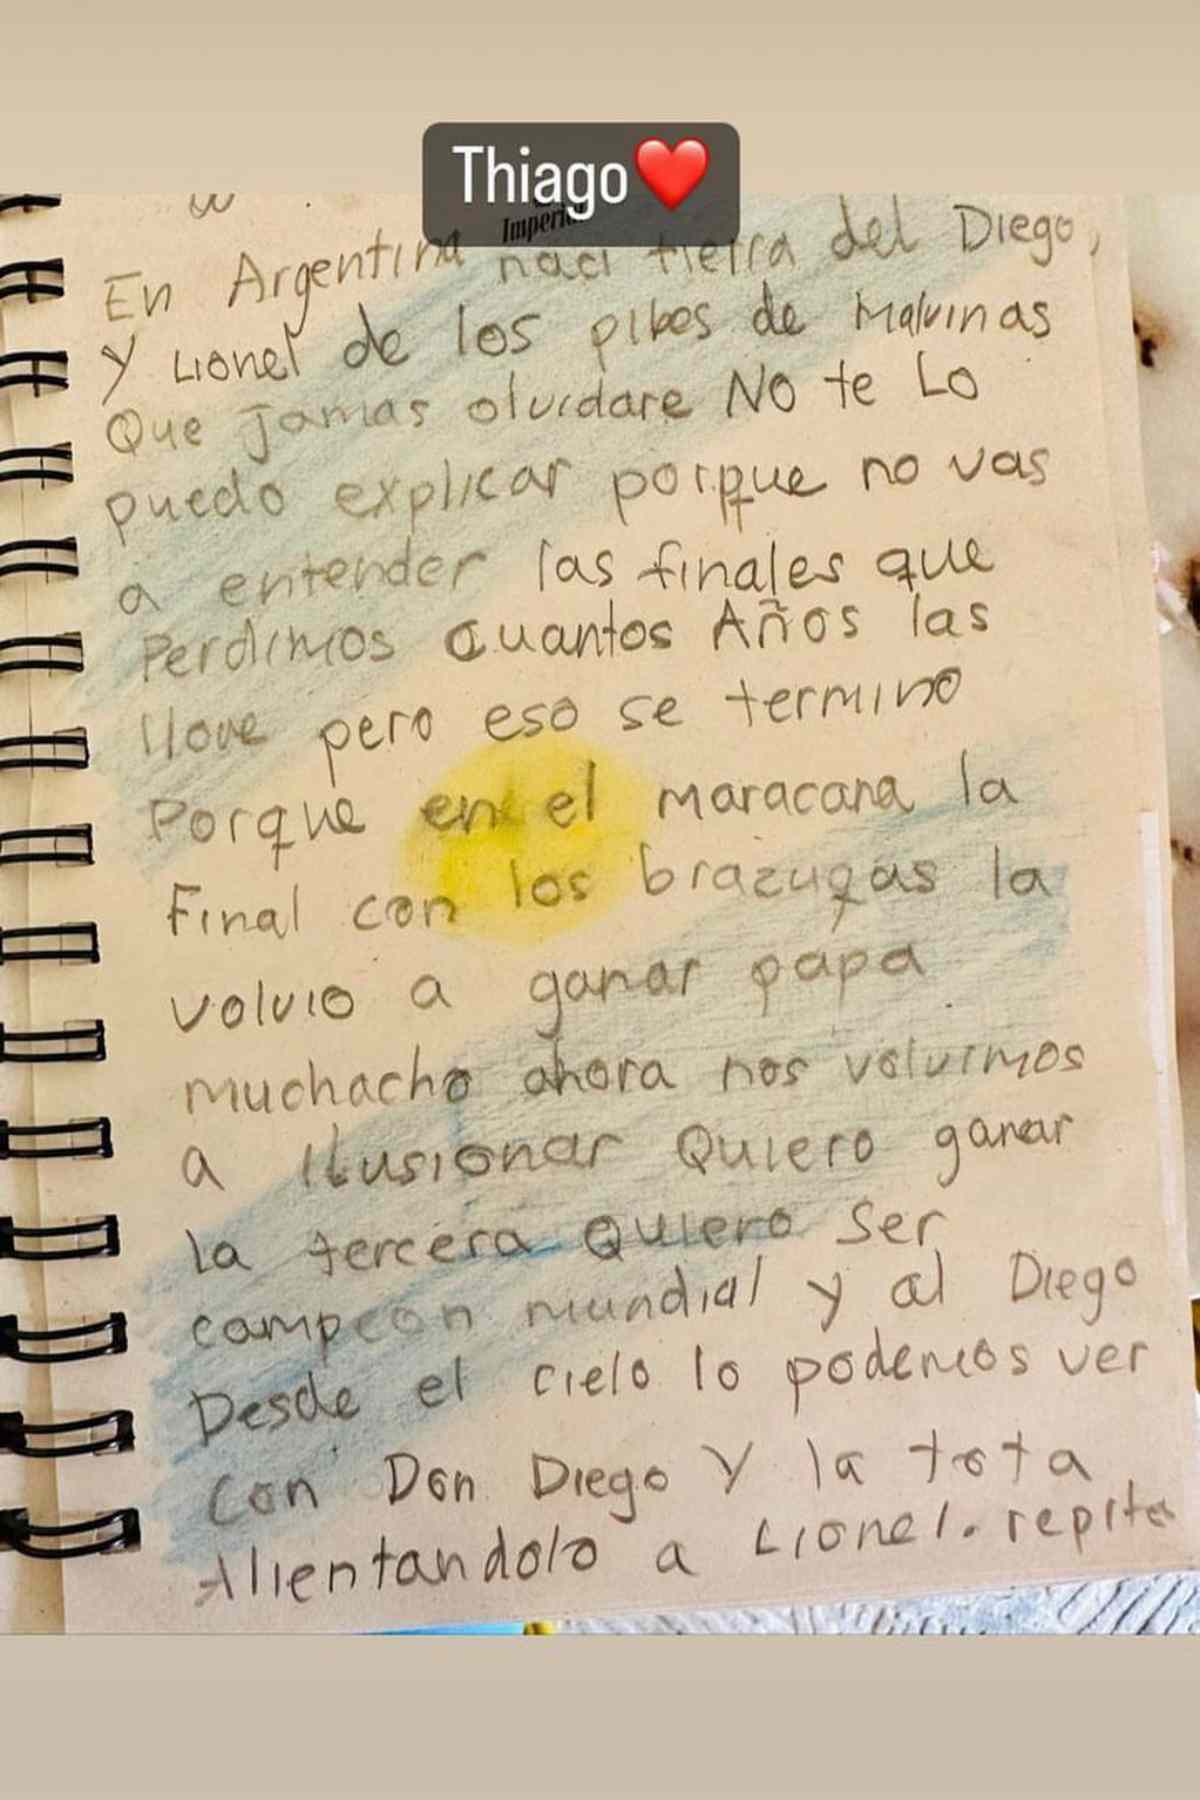 Thiago❤️
Imperi
En Argentina naci tierra del Diego,
Y Lionel de los pibes de Malvinas
Que jamas olvidare NO te Lo
puedo explicar porque no vas
a entender las finales que
Perdimos cuantos Años las
llore pero eso se termino
Porque en el maracana la
Final con los brazugas la
volvio a ganar papa
muchacho ahora nos volvimos
a ilusionar Quiero ganar
la tercera Quiero Ser
campeon mundial y al Diego
Desde el cielo lo podemos ver
Con Don Diego Y la tota
Alientandolo a Lionel. repite